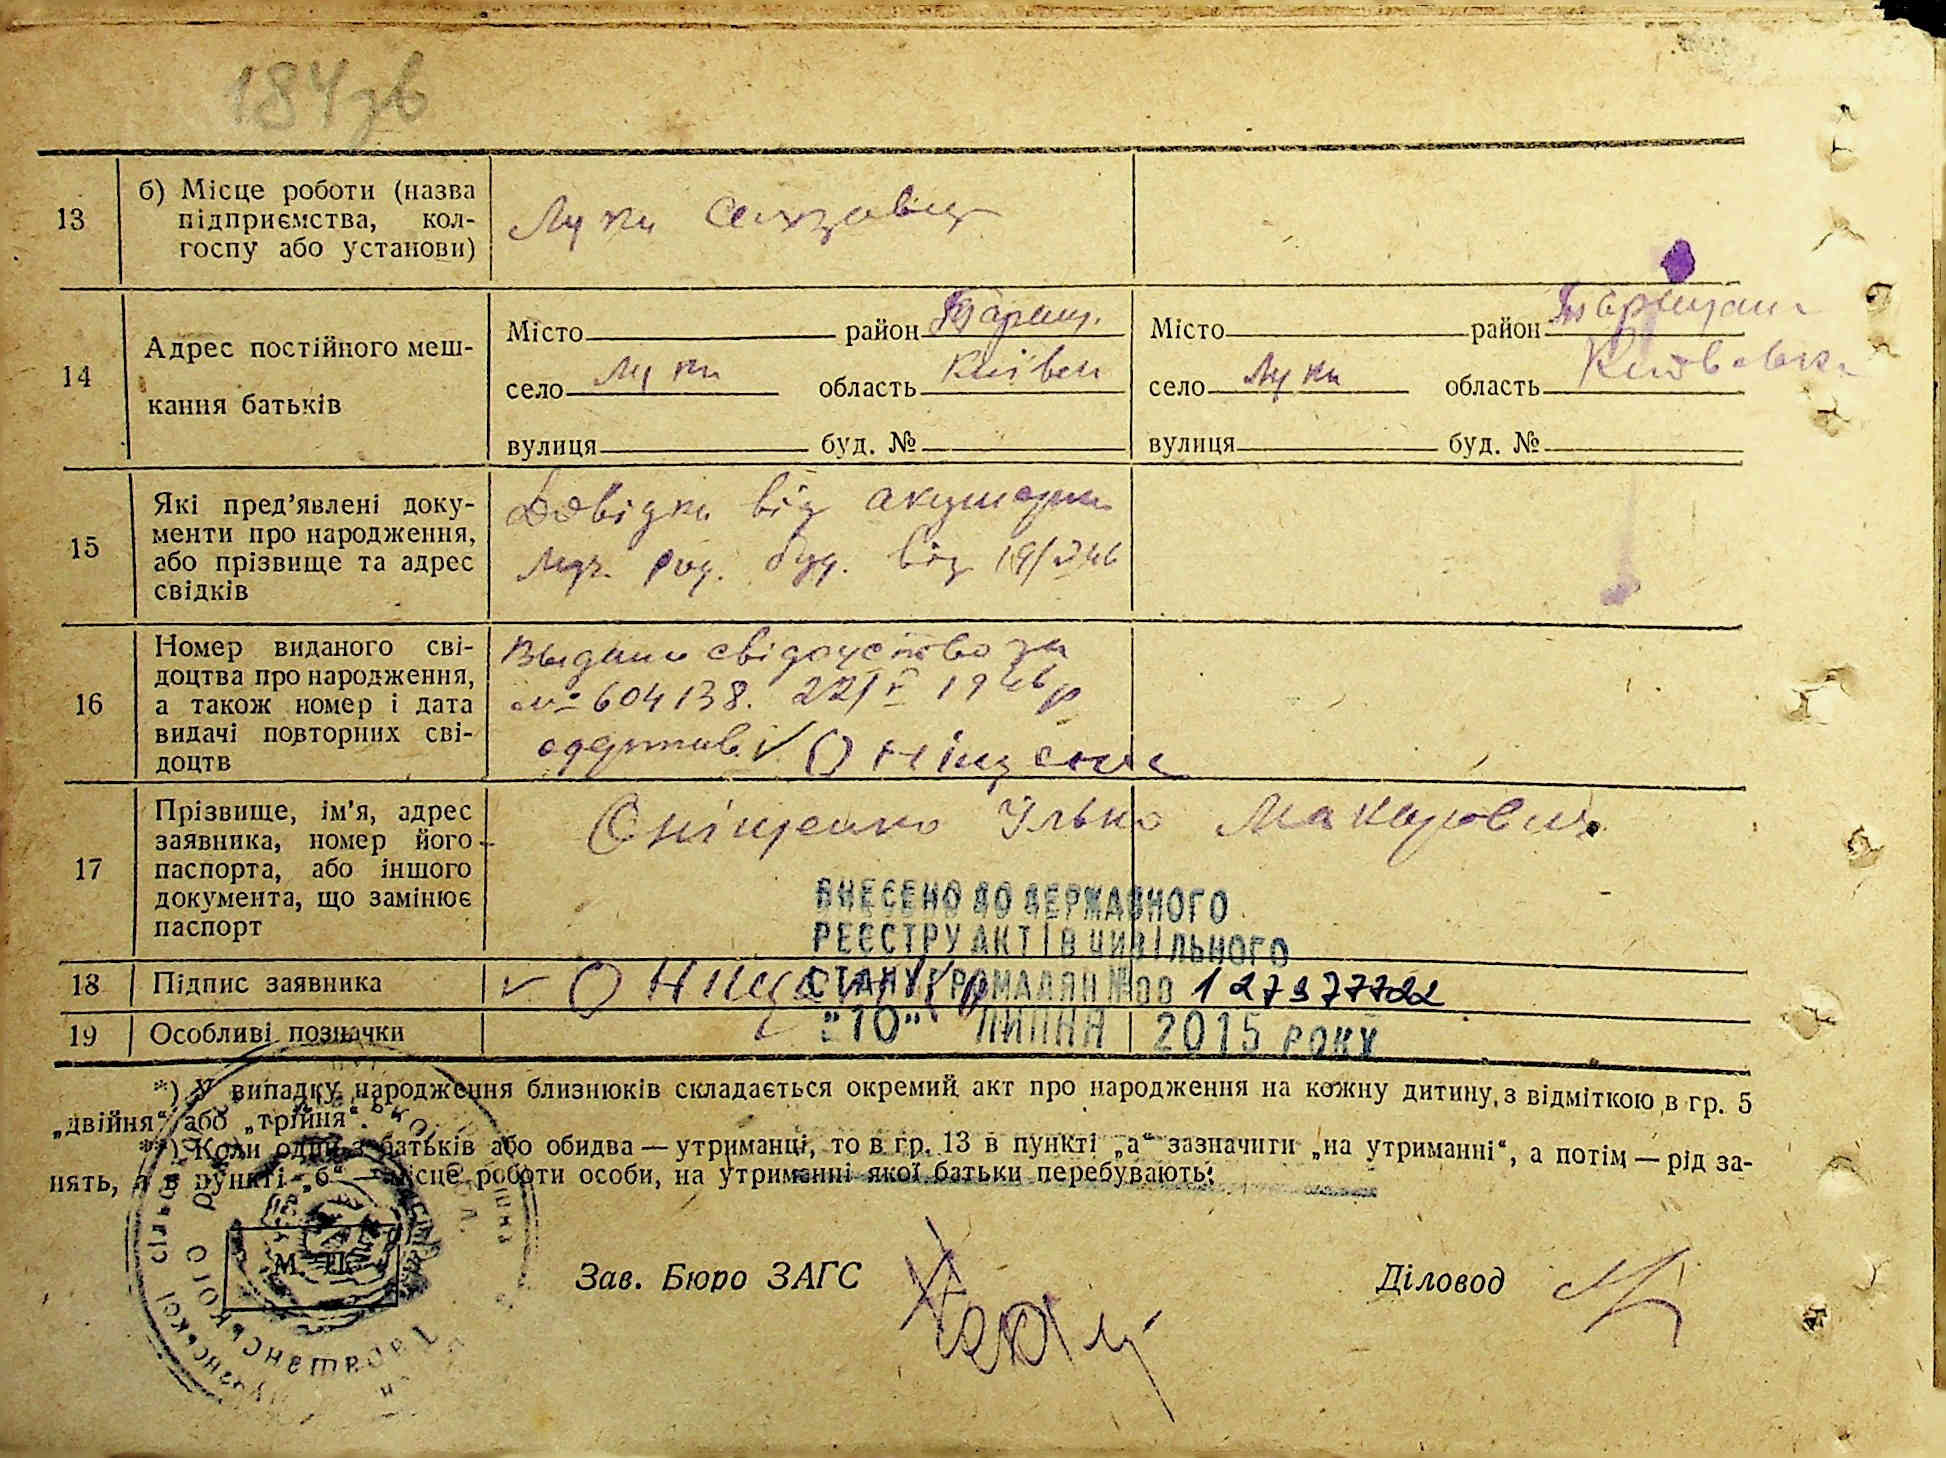 184зв
13
б) Місце роботи (назва
підприємства, кол-
госпу або установи)
Луки
14
Адрес постійного меш-
кання батьків
Місто район Таращ.
село Луки область Київськ
вулиця буд. №
Місто район Таращан
село Луки область Київська
вулиця буд. №
15
Які пред’явлені доку-
менти про народження,
або прізвище та адрес
свідків
Довідка від акушерки
род. буд. від 19/V 46
16
Номер виданого сві-
доцтва про народження,
а також номер і дата
видачі повторних сві-
доцтв
Выдано свідоцтво за
№ 604138. 22/V 1946 р
одержав Оніщенко
17
Прізвище, ім’я, адрес
заявника, номер його
паспорта, або іншого
документа, що замінює
паспорт
Оніщенко Ілько Макарович
ВНЕСЕНО ДО ДЕРЖАВНОГО
РЕЄСТРУ АКТІВ ЦИВІЛЬНОГО
СТАНУ ГРОМАДЯН №00127977722
"10" ЛИПНЯ 2015 РОКУ
18
Підпис заявника
Оніщенко
19
Особливі позначки
*) У випадку народження близнюків складається окремий акт про народження на кожну дитину, з відміткою в гр. 5
„двійня“ або „трійня“.
**) Коли один з батьків або обидва — утриманці, то в гр. 13 в пункті „а“ зазначити „на утриманні“, а потім — рід за-
нять, а в пункті „б“ — місце роботи особи, на утриманні якої батьки перебувають.
М. П.
Зав. Бюро ЗАГС
Діловод